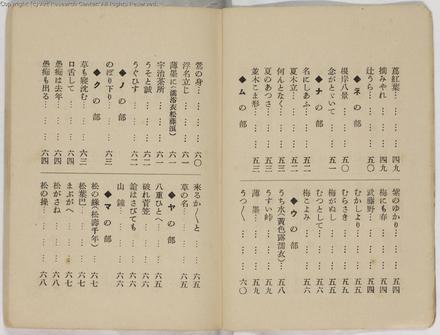 蔦紅葉……四九
摘みやれ……四九
辻うら……五〇
◆ネの部
根岸八景……五〇
念がとゞいて……五一
◆ナの部
名にしあふ……五二
夏木立……五二
何んとなく……五三
夏のあつさ……五三
並木こま形……五三
◆ムの部
紫のゆかり……五四
梅にも春……五四
武藤野……五四
むかしより……五五
むらさき……五五
梅がぬし……五五
むつとして……五五
梅ごよみ……五六
◆ウの部
うち水(黄色露濡衣)……五八
うすい峠……五九
薄墨……五九
うつゝ……六〇
鶯の身……六〇
浮名立じ……六一
薄墨に(濡浴衣松藤浪)……六一
宇治茶所……六一
うそと誠……六二
うぐひす……六二
◆ノの部
のぼり下り……六三
◆クの部
草も寝沈む……六三
口舌して……六四
愚痴は去年……六四
愚痴も出る……六四
来るか〳〵と……六五
草の名……六五
◆ヤの部
八重ひとへ……六五
破れ菅笠……六五
鎗はさびても……六五
山鐘……六六
◆マの部
松の緑(松壽千年)……六六
松葉巴……六七
まぶがへ……六七
松がさね……六八
松の操……六八